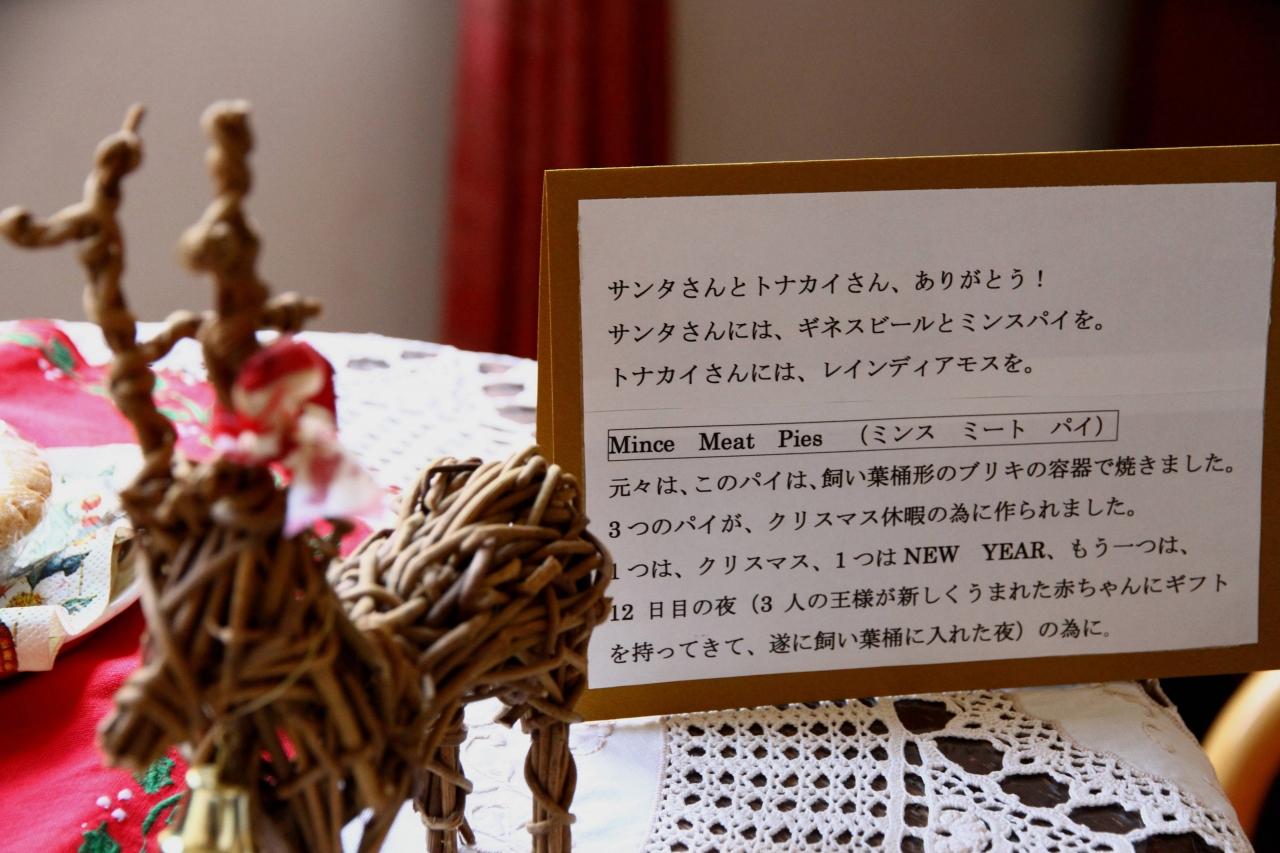 サンタさんとトナカイさん、ありがとう！
サンタさんには、ギネスビールとミンスパイを。
トナカイさんには、レインディアモスを。
Mince Meat Pies （ミンス ミート パイ）
元々は、このパイは、飼い葉桶形のブリキの容器で焼きました。
3つのパイが、クリスマス休暇の為に作られました。
1つは、クリスマス、1つは NEW YEAR、もう一つは、
12 日目の夜（3 人の王様が新しくうまれた赤ちゃんにギフト
を持ってきて、遂に飼い葉桶に入れた夜）の為に。